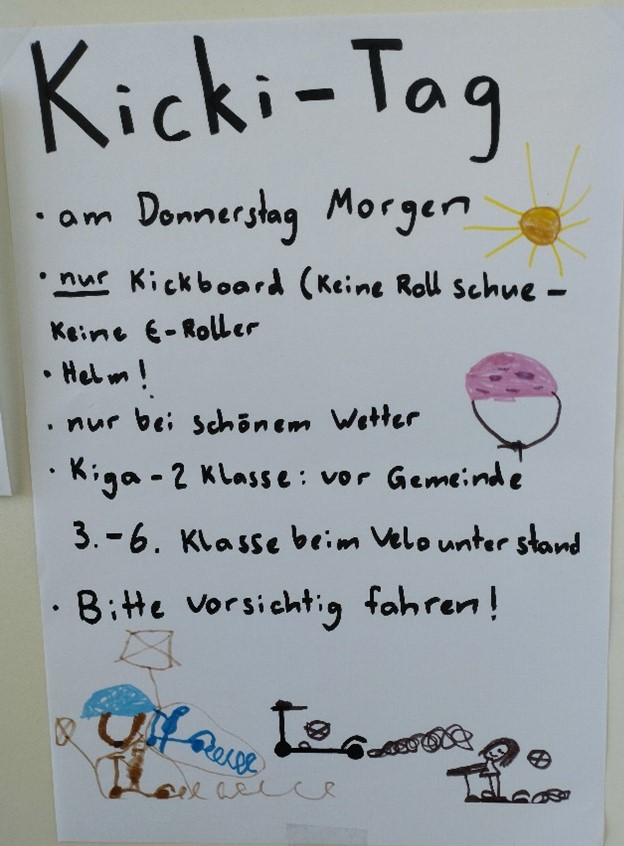 Kicki-Tag
• am Donnerstag Morgen
• nur Kickboard (Keine Roll schue -
Keine E-Roller
• Helm!
• nur bei schönem Wetter
• Kiga - 2 Klasse: vor Gemeinde
3.-6. Klasse beim Velo unter stand
• Bitte vorsichtig fahren!